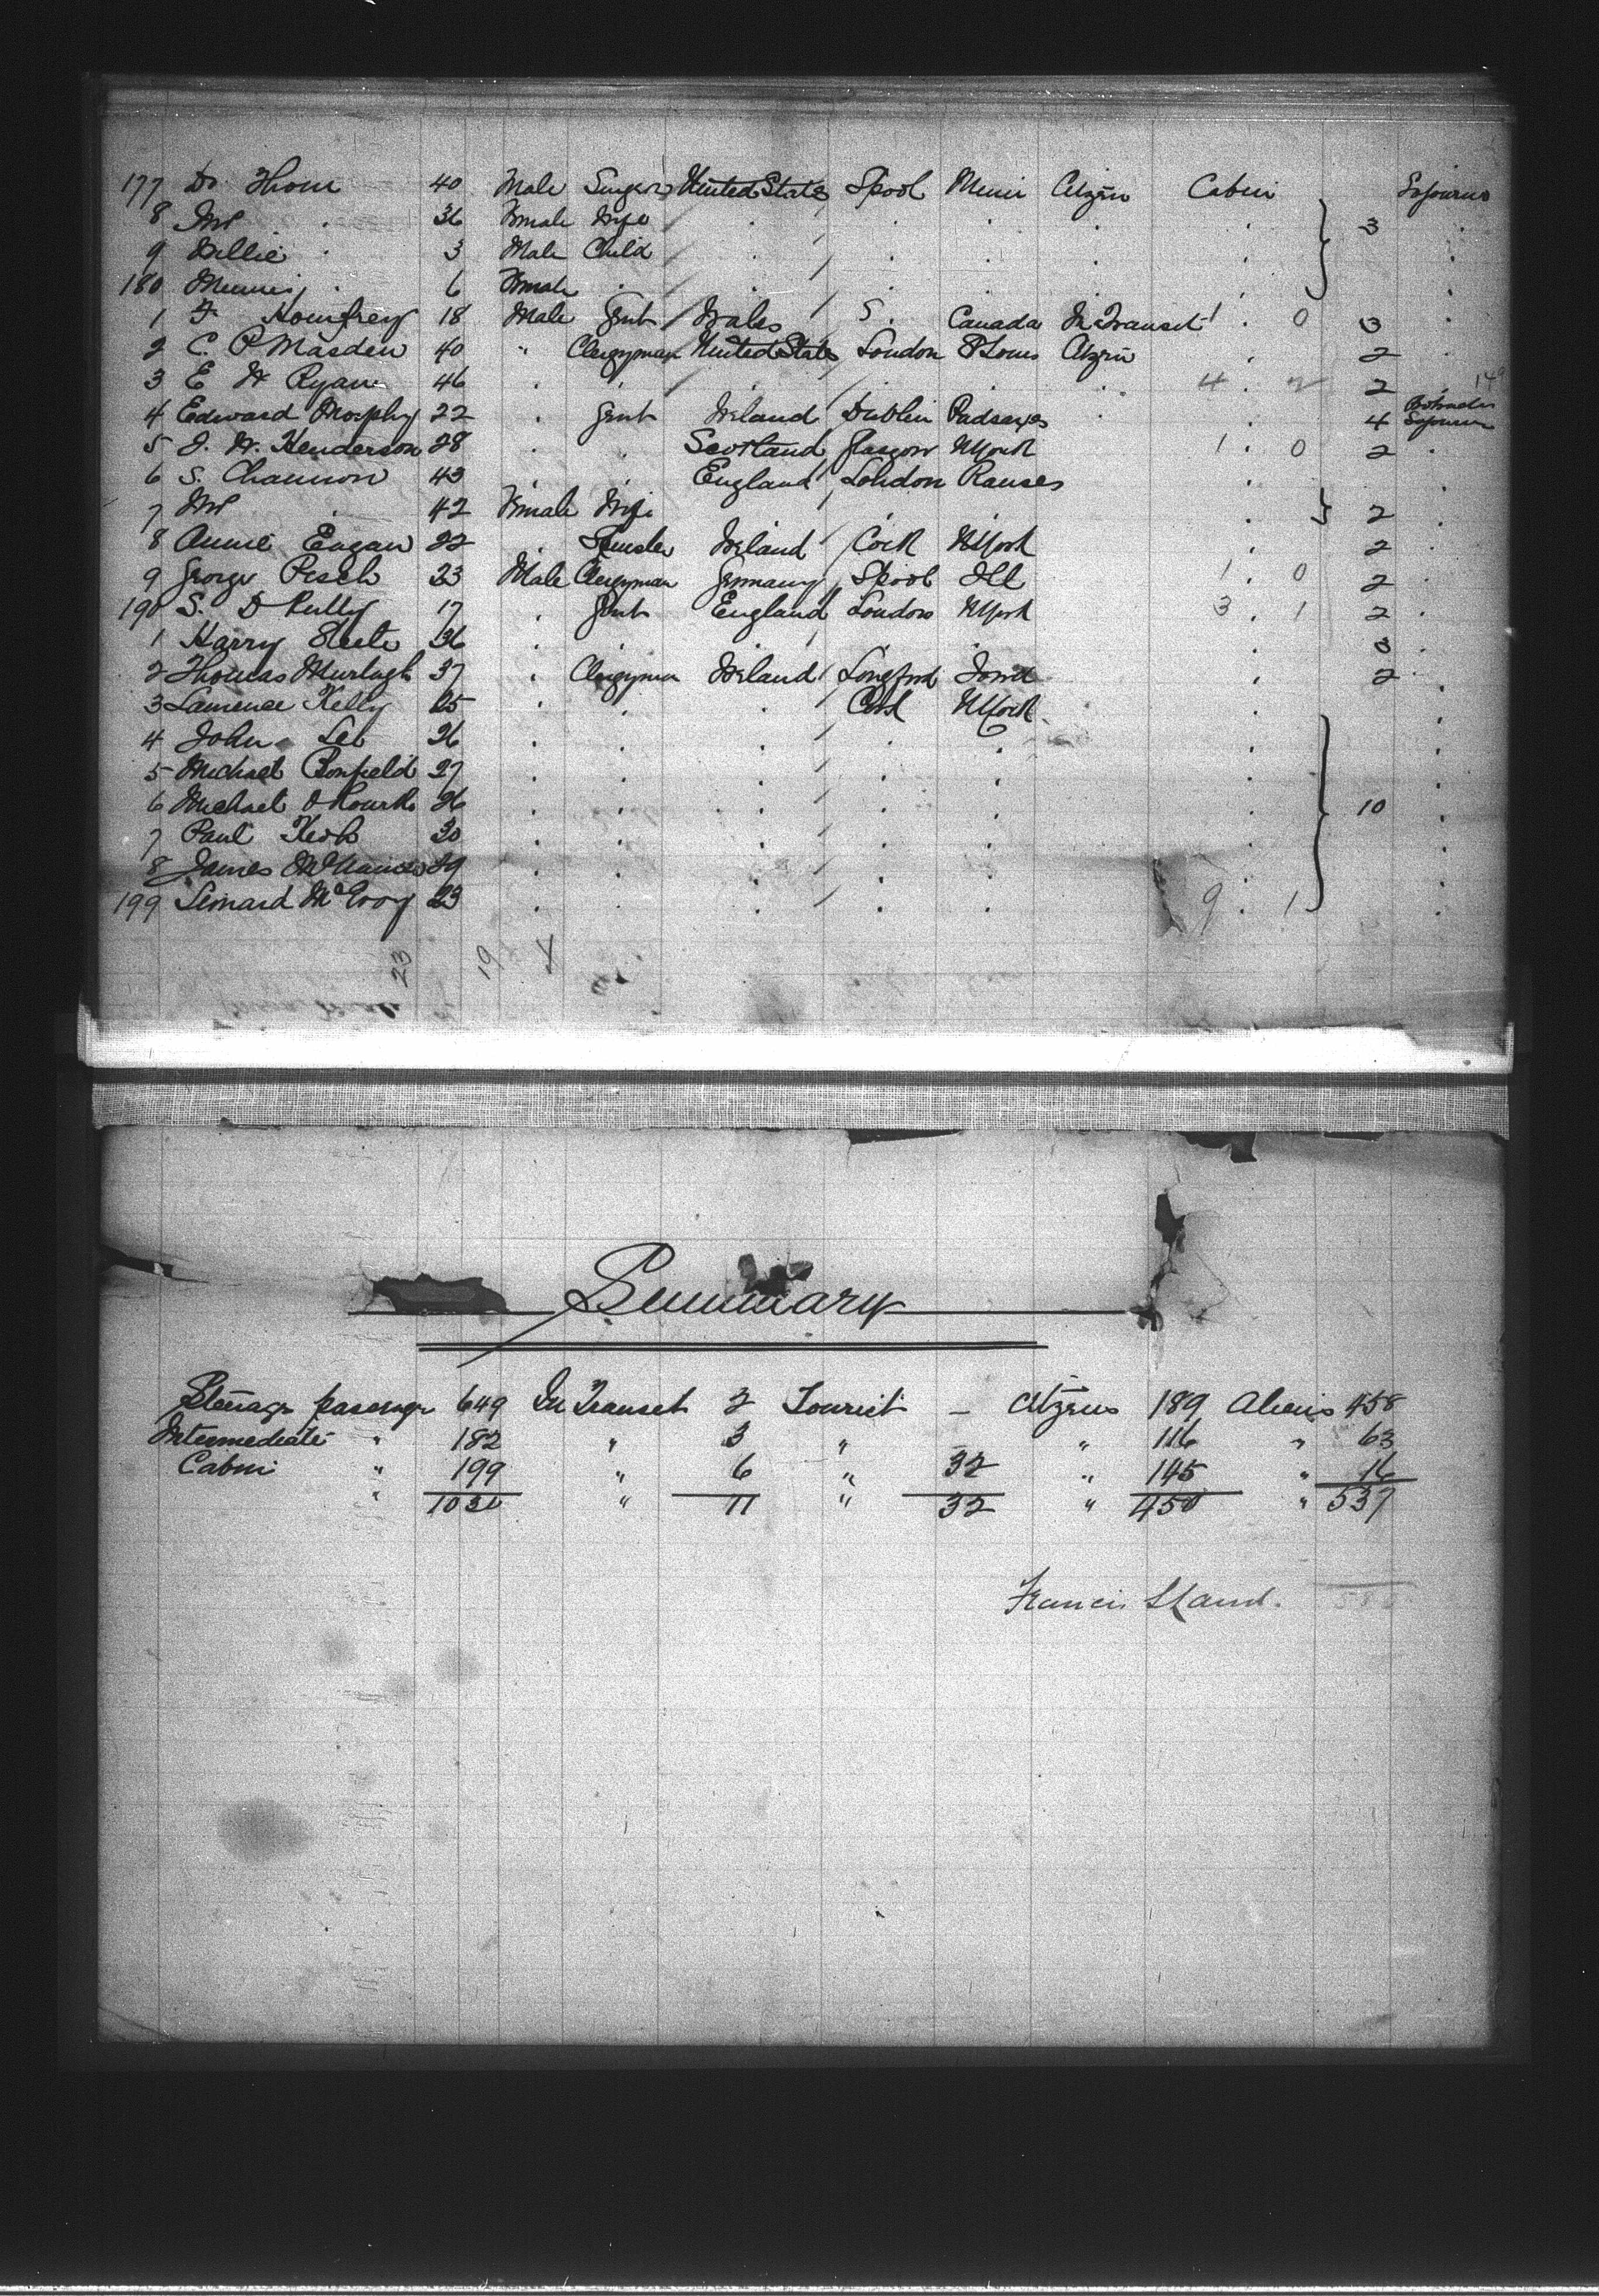 177 Dr Thom 40 Male Singer United States Lpool Citizen Cabin Sojourns
8 Mrs . 36 Female Wife . . . . . 3 .
9 Willie . 3 Male Child . . . . . .
180 . 6 Female . . . . . . .
1 F Homfrey 18 Male Gent Wales . Canada In Transit 1 . 0 3 .
2 C. P Masden 40 " Clergyman United States London St Louis Citzn . 2 .
3 E W Ryan 46 . . . . . . 4 . 2 2 .
4 Edward Morphy 22 . Gent Ireland Dublin . . 4
5 J. W. Henderson 28 . . Scotland Glasgow N York 1 . 0 2 .
6 S. Channon 43 . . England London . .
7 Mrs . 42 Female Wife . . . . 2 .
8 Annie Eagan 22 . Spinster Ireland Cork N York . 2 .
9 George Pesch 23 Male Clergyman Germany Lpool Ill 1 . 0 2 .
190 S. D 17 . Gent England London N York 3 . 1 2 .
1 Harry 36 . . . . . . 3 .
2 Thomas Murtagh 37 . Clergyman Ireland Longford Iowa . 2 .
3 Laurence Kelly 25 . . . Cork N York . .
4 John Lee 26 . . . . . . .
5 Michael Bonfield 27 . . . . . . .
6 Michael O Rourke 26 . . . . . . 10 .
7 Paul 30 . . . . . . .
8 James 29 . . . . . . .
199 Lenard McEvoy 23 . . . . . 9 . 1 .
23 19 X
Summary
Steerage passenger 649 In Transit 2 Tourist – Citzens 189 Aliens 458
Intermediate " 182 " 3 " – " 116 " 63
Cabin " 199 " 6 " 32 " 145 " 16
" 1030 " 11 " 32 " 450 " 537
Francis